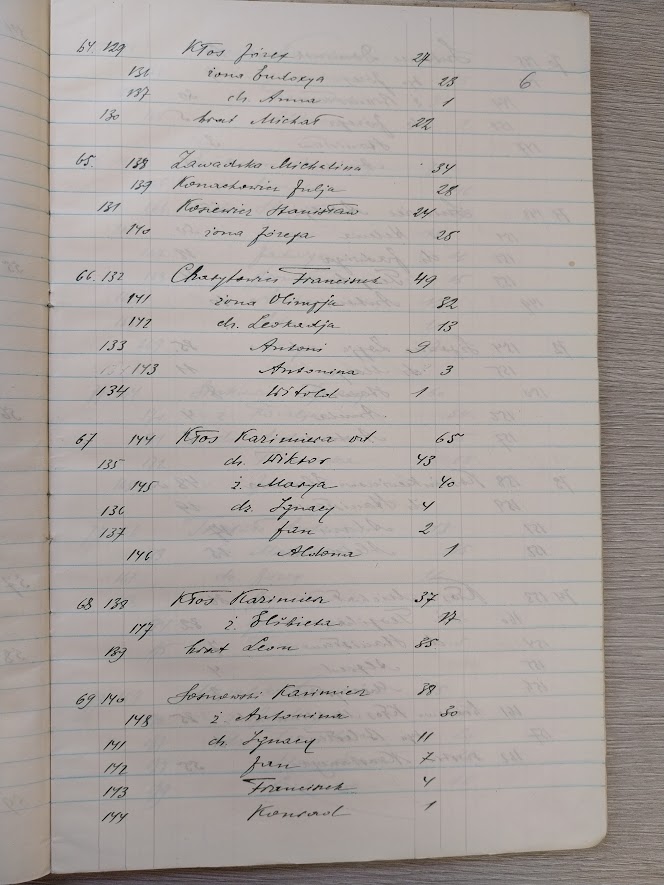 64 129 Kłos Józef 27
131 żona Eudoxya 23 6
137 dz. Anna 1
130 brat Michał 22
65. 138 Zawadzka Michalina 34
139 Konachowicz Julja 28
131 Kosiewicz Stanisław 24
140 żona Józefa 25
66. 132 Charytowicz Franciszek 49
141 żona Olimpja 32
142 dz. Leokadja 13
133 Antoni 9
143 Antonina 3
134 Witold 1
67 144 Kłos Kazimiera wd 65
135 dz. Wiktor 43
145 ż. Marya 40
136 dz. Ignacy 4
137 Jan 2
146 Aldona 1
68 138 Kłos Kazimierz 37
147 ż. Elżbieta 27
139 brat Leon 35
69 140 Sosnowski Kazimierz 38
148 ż. Antonina 30
141 dz. Ignacy 11
142 Jan 7
143 Franciszek 4
144 Konrad 1